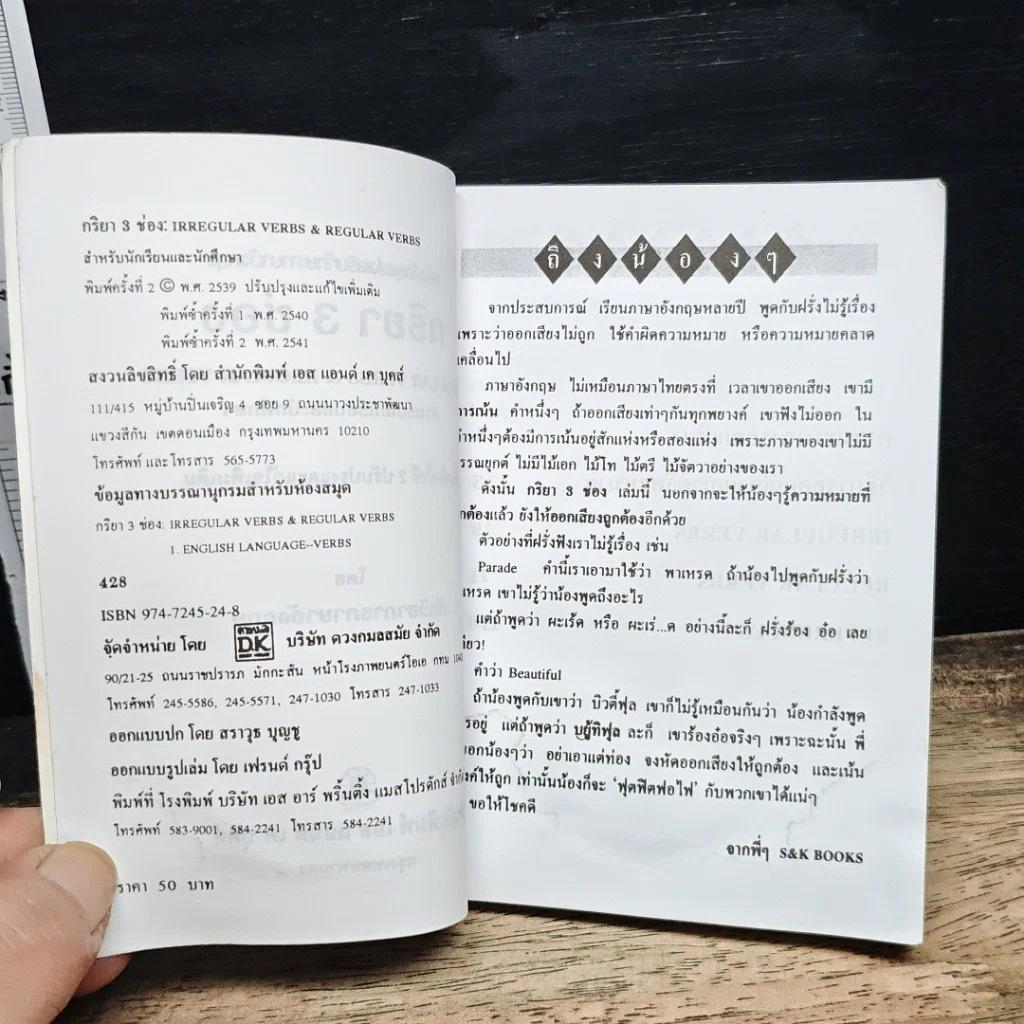 กริยา 3 ช่อง: IRREGULAR VERBS & REGULAR VERBS
สำหรับนักเรียนและนักศึกษา
พิมพ์ครั้งที่ 2 © พ.ศ. 2539 ปรับปรุงและแก้ไขเพิ่มเติม
พิมพ์ซ้ำครั้งที่ 1 พ.ศ. 2540
พิมพ์ซ้ำครั้งที่ 2 พ.ศ. 2541
สงวนลิขสิทธิ์ โดย สำนักพิมพ์ เอส แอนด์ เค บุคส์
111/415 หมู่บ้านปิ่นเจริญ 4 ซอย 9 ถนนนาวงประชาพัฒนา
แขวงสีกัน เขตดอนเมือง กรุงเทพมหานคร 10210
โทรศัพท์ และโทรสาร 565-5773
ข้อมูลทางบรรณานุกรมสำหรับห้องสมุด
กริยา 3 ช่อง: IRREGULAR VERBS & REGULAR VERBS
1. ENGLISH LANGUAGE--VERBS
428
ISBN 974-7245-24-8
จัดจำหน่าย โดย D.K บริษัท ดวงกมลสมัย จำกัด
90/21-25 ถนนราชปรารภ มักกะสัน หน้าโรงภาพยนตร์โอเอ กทม 1040
โทรศัพท์ 245-5586, 245-5571, 247-1030 โทรสาร 247-1033
ออกแบบปก โดย สราวุธ บุญชู
ออกแบบรูปเล่ม โดย เฟรนด์ กรุ๊ป
พิมพ์ที่ โรงพิมพ์ บริษัท เอส อาร์ พริ้นติ้ง แมสโปรดักส์ จำกัด
โทรศัพท์ 583-9001, 584-2241 โทรสาร 584-2241
ราคา 50 บาท
ถึงน้องๆ
จากประสบการณ์ เรียนภาษาอังกฤษหลายปี พูดกับฝรั่งไม่รู้เรื่อง
เพราะว่าออกเสียงไม่ถูก ใช้คำผิดความหมาย หรือความหมายคลาด
เคลื่อนไป
ภาษาอังกฤษ ไม่เหมือนภาษาไทยตรงที่ เวลาเขาออกเสียง เขามี
การเน้น คำหนึ่งๆ ถ้าออกเสียงเท่าๆกันทุกพยางค์ เขาฟังไม่ออก ใน
คำหนึ่งๆต้องมีการเน้นอยู่สักแห่งหรือสองแห่ง เพราะภาษาของเขาไม่มี
วรรณยุกต์ ไม่มีไม้เอก ไม้โท ไม้ตรี ไม้จัตวาอย่างของเรา
ดังนั้น กริยา 3 ช่อง เล่มนี้ นอกจากจะให้น้องๆรู้ความหมายที่
ถูกต้องแล้ว ยังให้ออกเสียงถูกต้องอีกด้วย
ตัวอย่างที่ฝรั่งฟังเราไม่รู้เรื่อง เช่น
Parade คำนี้เราเอามาใช้ว่า พาเหรด ถ้าน้องไปพูดกับฝรั่งว่า
เหรด เขาไม่รู้ว่าน้องพูดถึงอะไร
แต่ถ้าพูดว่า ผะเร้ด หรือ ผะเร่...ด อย่างนี้ละก็ ฝรั่งร้อง อ๋อ เลย
เดียว!
คำว่า Beautiful
ถ้าน้องพูดกับเขาว่า บิวตี้ฟุล เขาก็ไม่รู้เหมือนกันว่า น้องกำลังพูด
อยู่ แต่ถ้าพูดว่า บยู้ทิฟุล ละก็ เขาร้องอ๋อจริงๆ เพราะฉะนั้น พี่
บอกน้องๆว่า อย่าเอาแต่ท่อง จงหัดออกเสียงให้ถูกต้อง และเน้น
ให้ถูก เท่านั้นน้องก็จะ ‘ฟุตฟิตฟอไฟ’ กับพวกเขาได้แน่ๆ
ขอให้โชคดี
จากพี่ๆ S&K BOOKS